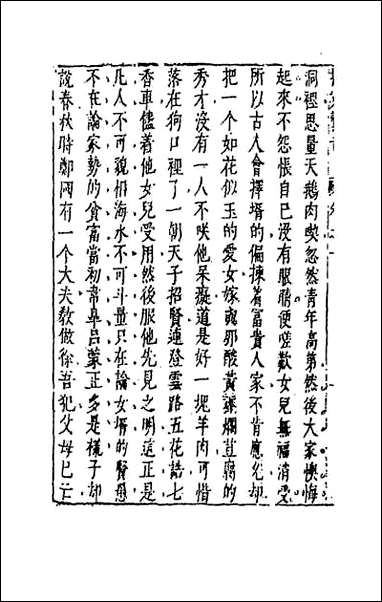 洞裡思量天鵝肉喫忽然青年高第然後大家懊悔
起來不怨悵自己沒有眼睛便嗟歎女兒無福消受
所以古人會擇壻的偏揀著富貴人家不肯應允却
把一个如花似玉的愛女嫁與那酸黃虀爛荳腐的
秀才沒有一人不咲他呆癡道是好一塊羊肉可惜
落在狗口裡了一朝天子招賢連登雲路五花誥七
香車儘着他女兒受用然後服他先見之明這正是
凡人不可貌相海水不可斗量只在論女壻的賢愚
不在論家勢的貧富當初韋皋呂蒙正多是樣子却
說春秋時鄭國有一个大夫敎做徐吾犯父母已亡